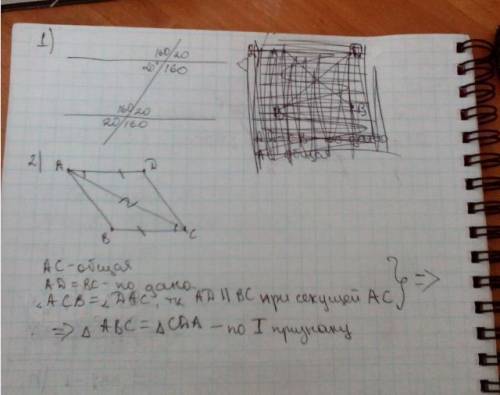 1)
160/20
20/160
160/20
20/160
2)
A
D
B
C
AC - общая
AD = BC - по дано
∠ACB = ∠DAC, тк AD || BC при секущей AC } =>
=> △ABC = △CDA - по I признаку